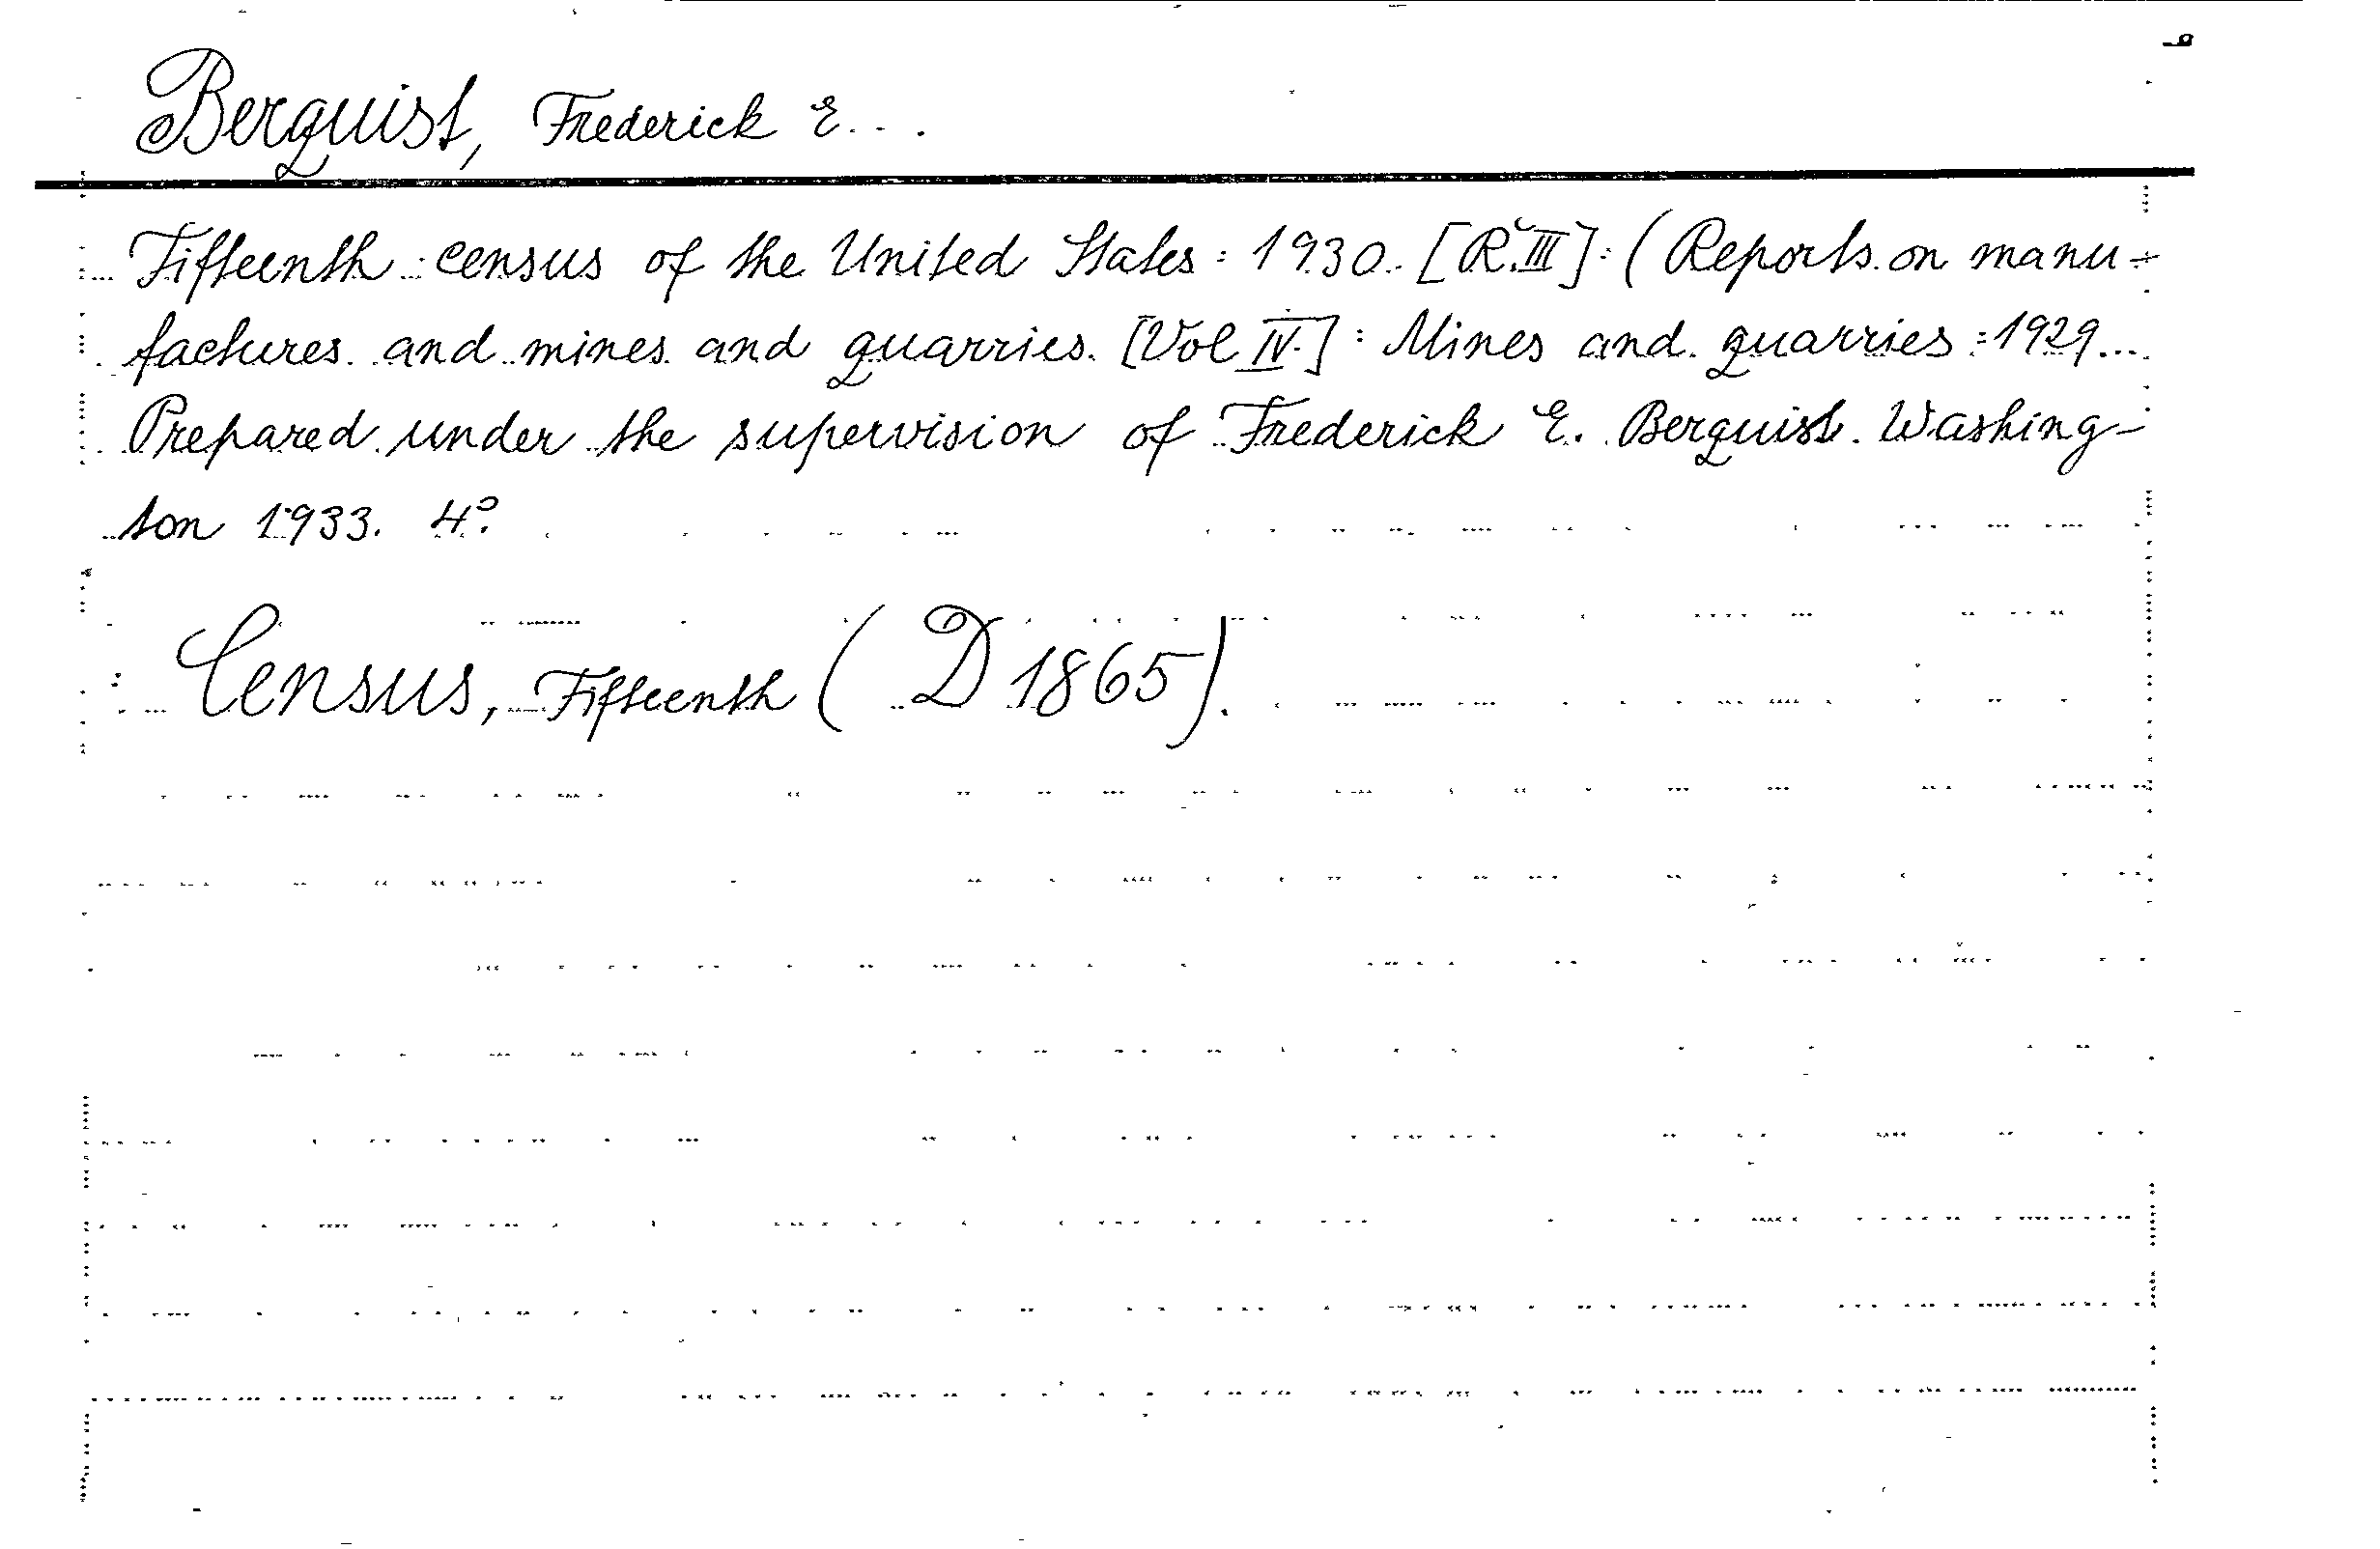 Berquist, Frederick E...
Fifteenth census of the United States: 1930. [R. III]: (Reports on manu-
factures and mines and quarries. [Vol IV.]: Mines and quarries: 1929...
Prepared under the supervision of Frederick E. Berquist. Washing-
ton 1933. 4º.
Census, Fifteenth (D 1865).